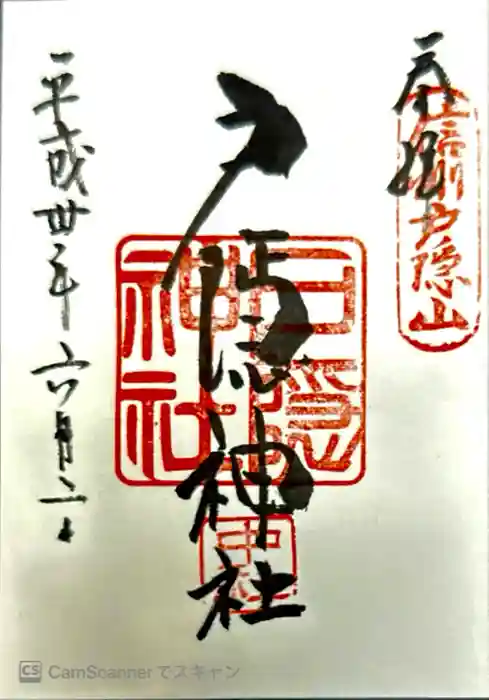 奉拝
信州戸隠山
戸隠神社
戸隠神社
中社
平成卅年六月二日
CS CamScanner でスキャン